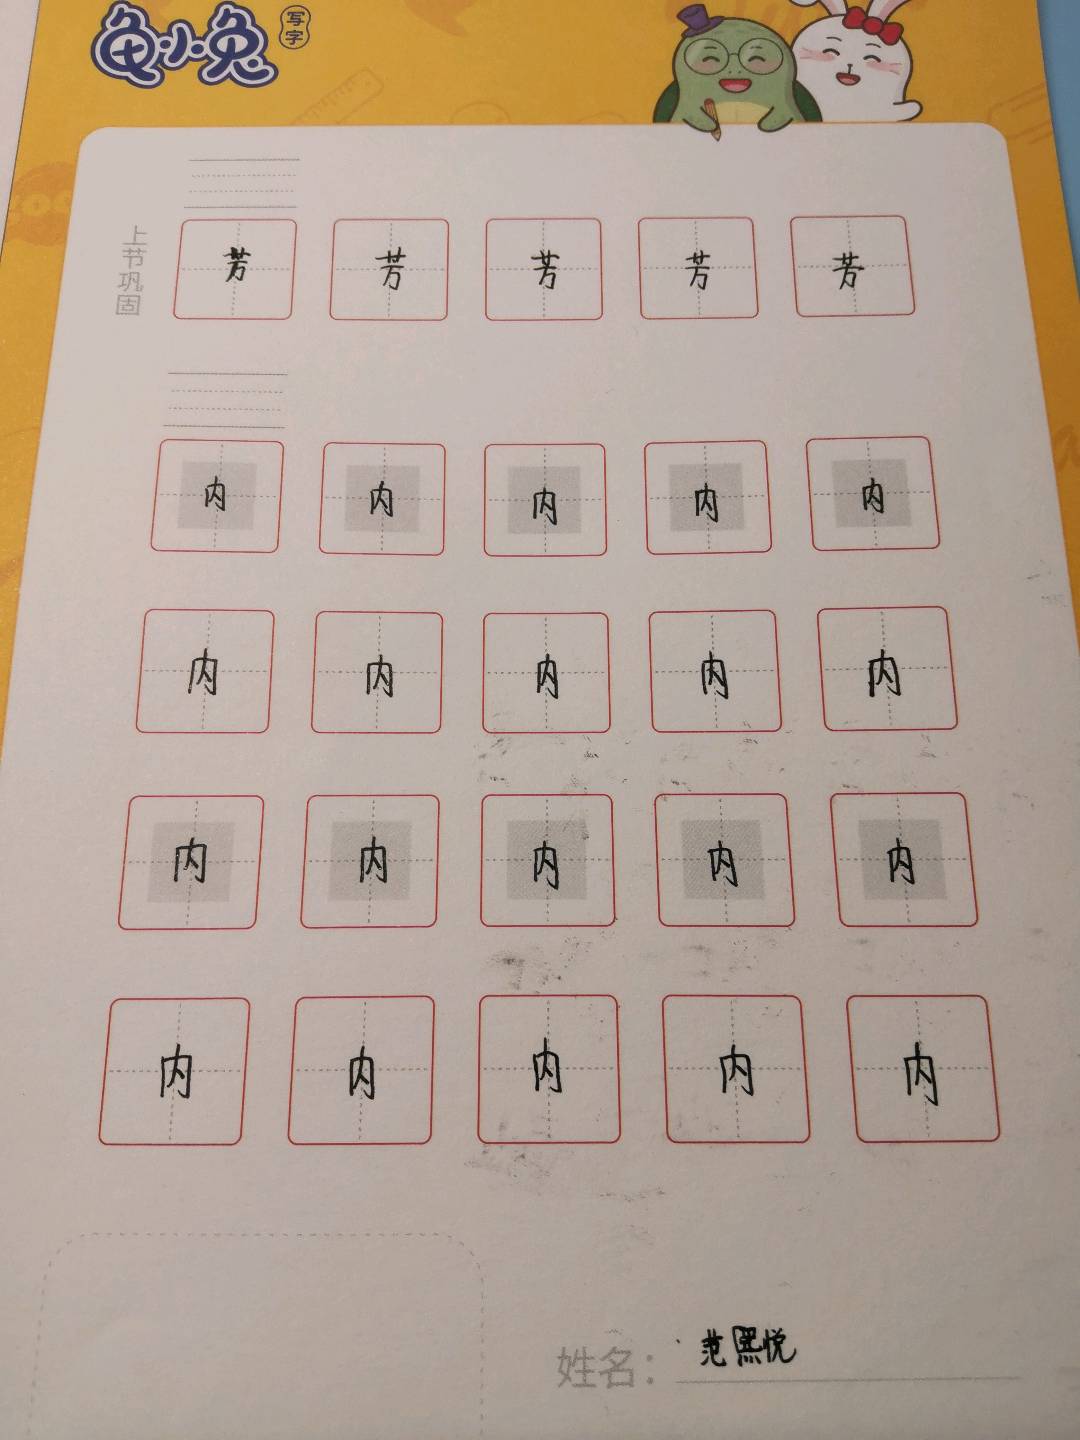 龟小兔 写字
上节巩固
芳 芳 芳 芳 芳
内 内 内 内 内
内 内 内 内 内
内 内 内 内 内
内 内 内 内 内
姓名: 范熙悦